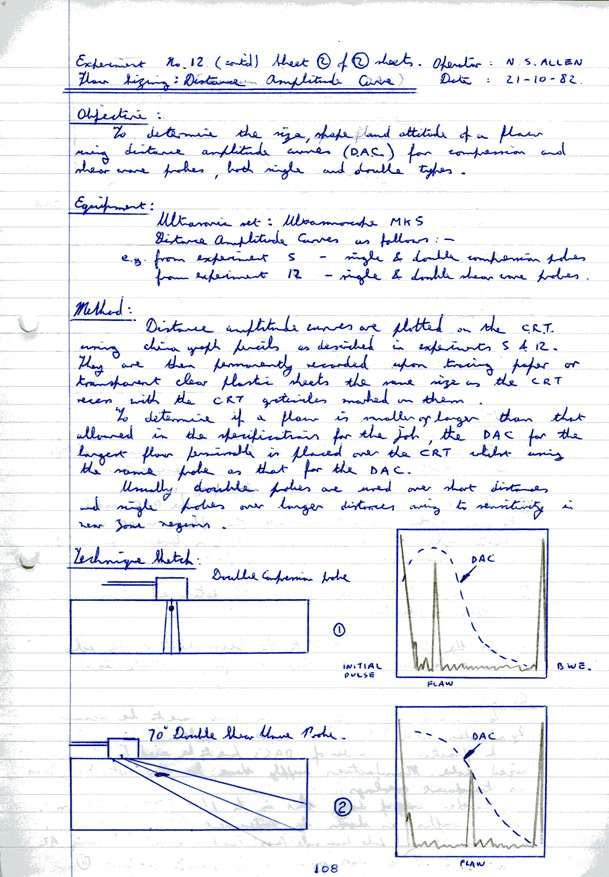 Experiment No. 12 (cont'd) Sheet ② of ② sheets. Operator : N. S. ALLEN
Flaw Sizing : Distance Amplitude Curve Date : 21-10-82.
Objective :
To determine the size, shape and attitude of a flaw
using distance amplitude curves (DAC) for compression and
shear wave probes, both single and double types.
Equipment :
Ultrasonic set : Ultrasonoscope MK5
Distance Amplitude Curves as follows : -
e.g. from experiment 5 - single & double compression probes
from experiment 12 - single & double shear wave probes.
Method :
Distance amplitude curves are plotted on the CRT.
using china graph pencils as described in experiments 5 & 12.
They are then permanently recorded upon tracing paper or
transparent clear plastic sheets the same size as the CRT
recess with the CRT graticules marked on them.
To determine if a flaw is smaller or larger than that
allowed in the specifications for the job, the DAC for the
largest flaw permissible is placed over the CRT whilst using
the same probe as that for the DAC.
Usually double probes are used over short distances
and single probes over longer distances owing to sensitivity in
near zone regions.
Technique Sketch :
Double Compression probe
DAC
①
INITIAL
PULSE
B.W.E.
FLAW
70° Double Shear Wave Probe.
DAC
②
FLAW
108